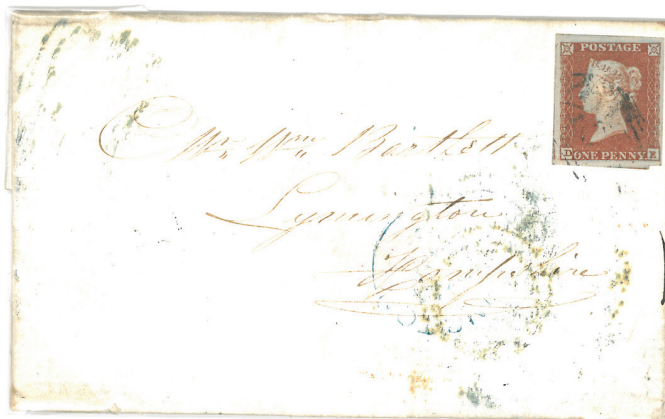 POSTAGE
ONE PENNY
Mr. Wm. Bartlett
Lymington
Hampshire